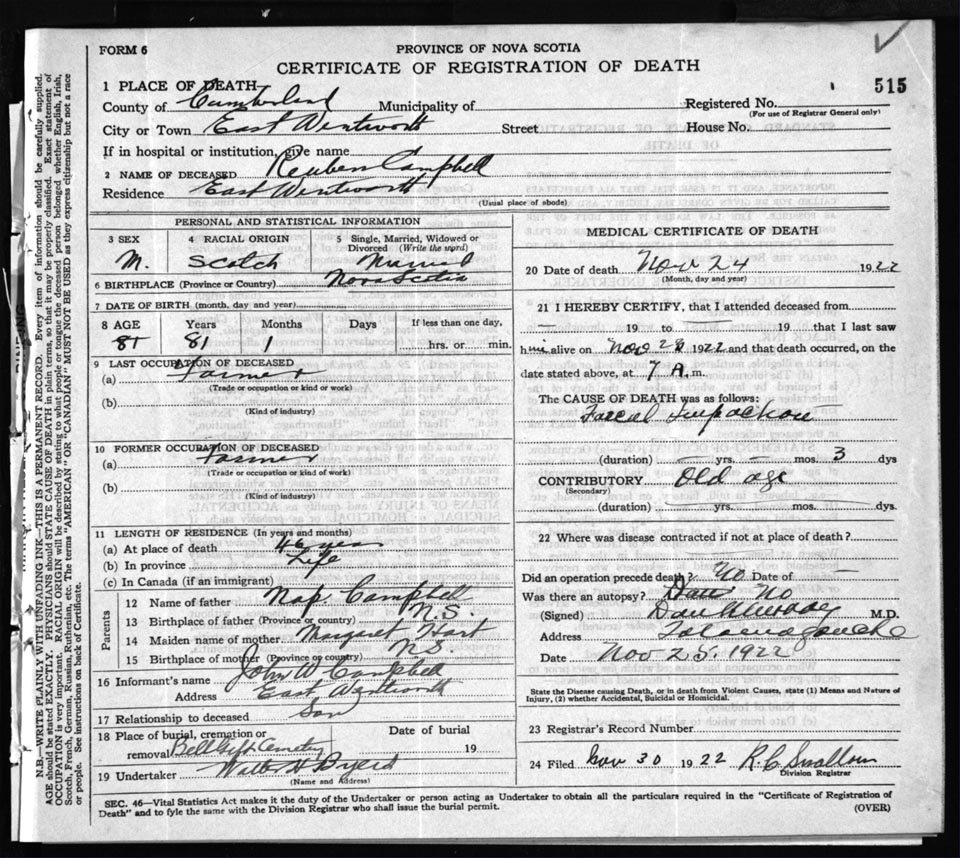 FORM 6
PROVINCE OF NOVA SCOTIA
CERTIFICATE OF REGISTRATION OF DEATH
515
1 PLACE OF DEATH
County of Cumberland Municipality of
Registered No.
(For use of Registrar General only)
City or Town East Wentworth Street House No.
If in hospital or institution, give name
2 NAME OF DECEASED Reuben Campbell
Residence East Wentworth
(Usual place of abode)
PERSONAL AND STATISTICAL INFORMATION
3 SEX 4 RACIAL ORIGIN 5 Single, Married, Widowed or Divorced (Write the word)
M. Scotch Married
6 BIRTHPLACE (Province or Country) Nova Scotia
7 DATE OF BIRTH (month, day and year)
8 AGE Years Months Days If less than one day,
81 81 1 hrs. or min.
9 LAST OCCUPATION OF DECEASED
(a) Farmer
(Trade or occupation or kind of work)
(b)
(Kind of industry)
10 FORMER OCCUPATION OF DECEASED
(a) Farmer
(Trade or occupation or kind of work)
(b)
(Kind of industry)
11 LENGTH OF RESIDENCE (In years and months)
(a) At place of death 46
(b) In province Life
(c) In Canada (if an immigrant)
Parents
12 Name of father Nap. Campbell
13 Birthplace of father (Province or country) N.S.
14 Maiden name of mother Margaret Hart
15 Birthplace of mother (Province or country) N.S.
16 Informant's name John W Campbell
Address East Wentworth
17 Relationship to deceased Son
18 Place of burial, cremation or removal Cemetery
Date of burial 19
19 Undertaker H Byers
(Name and Address)
MEDICAL CERTIFICATE OF DEATH
20 Date of death Nov 24 1922
(Month, day and year)
21 I HEREBY CERTIFY, that I attended deceased from
— 19 to — 19 that I last saw
him alive on Nov 23 1922 and that death occurred, on the
date stated above, at 7 A. m.
The CAUSE OF DEATH was as follows:
Faecal Impaction
(duration) — yrs. — mos. 3 dys
CONTRIBUTORY Old age
(Secondary)
(duration) yrs. mos. dys.
22 Where was disease contracted if not at place of death?
Did an operation precede death? No Date of —
Was there an autopsy? No
(Signed) Dan Murray M.D.
Address Tatamagouche
Date Nov 25, 1922
State the Disease causing Death, or in death from Violent Causes, state (1) Means and Nature of
Injury, (2) whether Accidental, Suicidal or Homicidal.
23 Registrar's Record Number
24 Filed Nov 30 1922 R. C. Swallow
Division Registrar
SEC. 46—Vital Statistics Act makes it the duty of the Undertaker or person acting as Undertaker to obtain all the particulars required in the "Certificate of Registration of
Death" and to fyle the same with the Division Registrar who shall issue the burial permit.
(OVER)
N.B.—WRITE PLAINLY WITH UNFADING INK—THIS IS A PERMANENT RECORD. Every item of information should be carefully supplied.
AGE should be stated EXACTLY. PHYSICIANS should STATE CAUSE OF DEATH in plain terms, so that it may be properly classified. Exact statement of
OCCUPATION is very important. RACIAL ORIGIN will be described by stating to what people or tongue the deceased person belonged whether English, Irish,
Scotch, French, German, Russian, Ruthenian, etc. The terms "AMERICAN" OR "CANADIAN" MUST NOT BE USED as they express citizenship but not a race
or people. See instructions on back of Certificate.